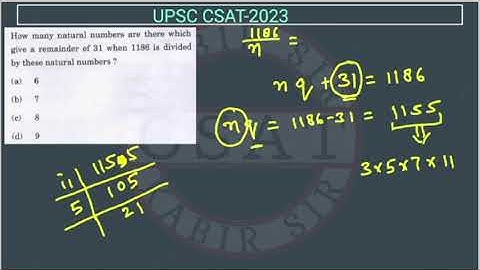 UPSC CSAT-2023
How many natural numbers are there which
give a remainder of 31 when 1186 is divided
by these natural numbers ?
(a) 6
(b) 7
(c) 8
(d) 9
1186/n =
nq + 31 = 1186
nq = 1186-31 = 1155
3×5×7×11
11 | 1155
5 | 105
21
CSAT
KABIR SIR